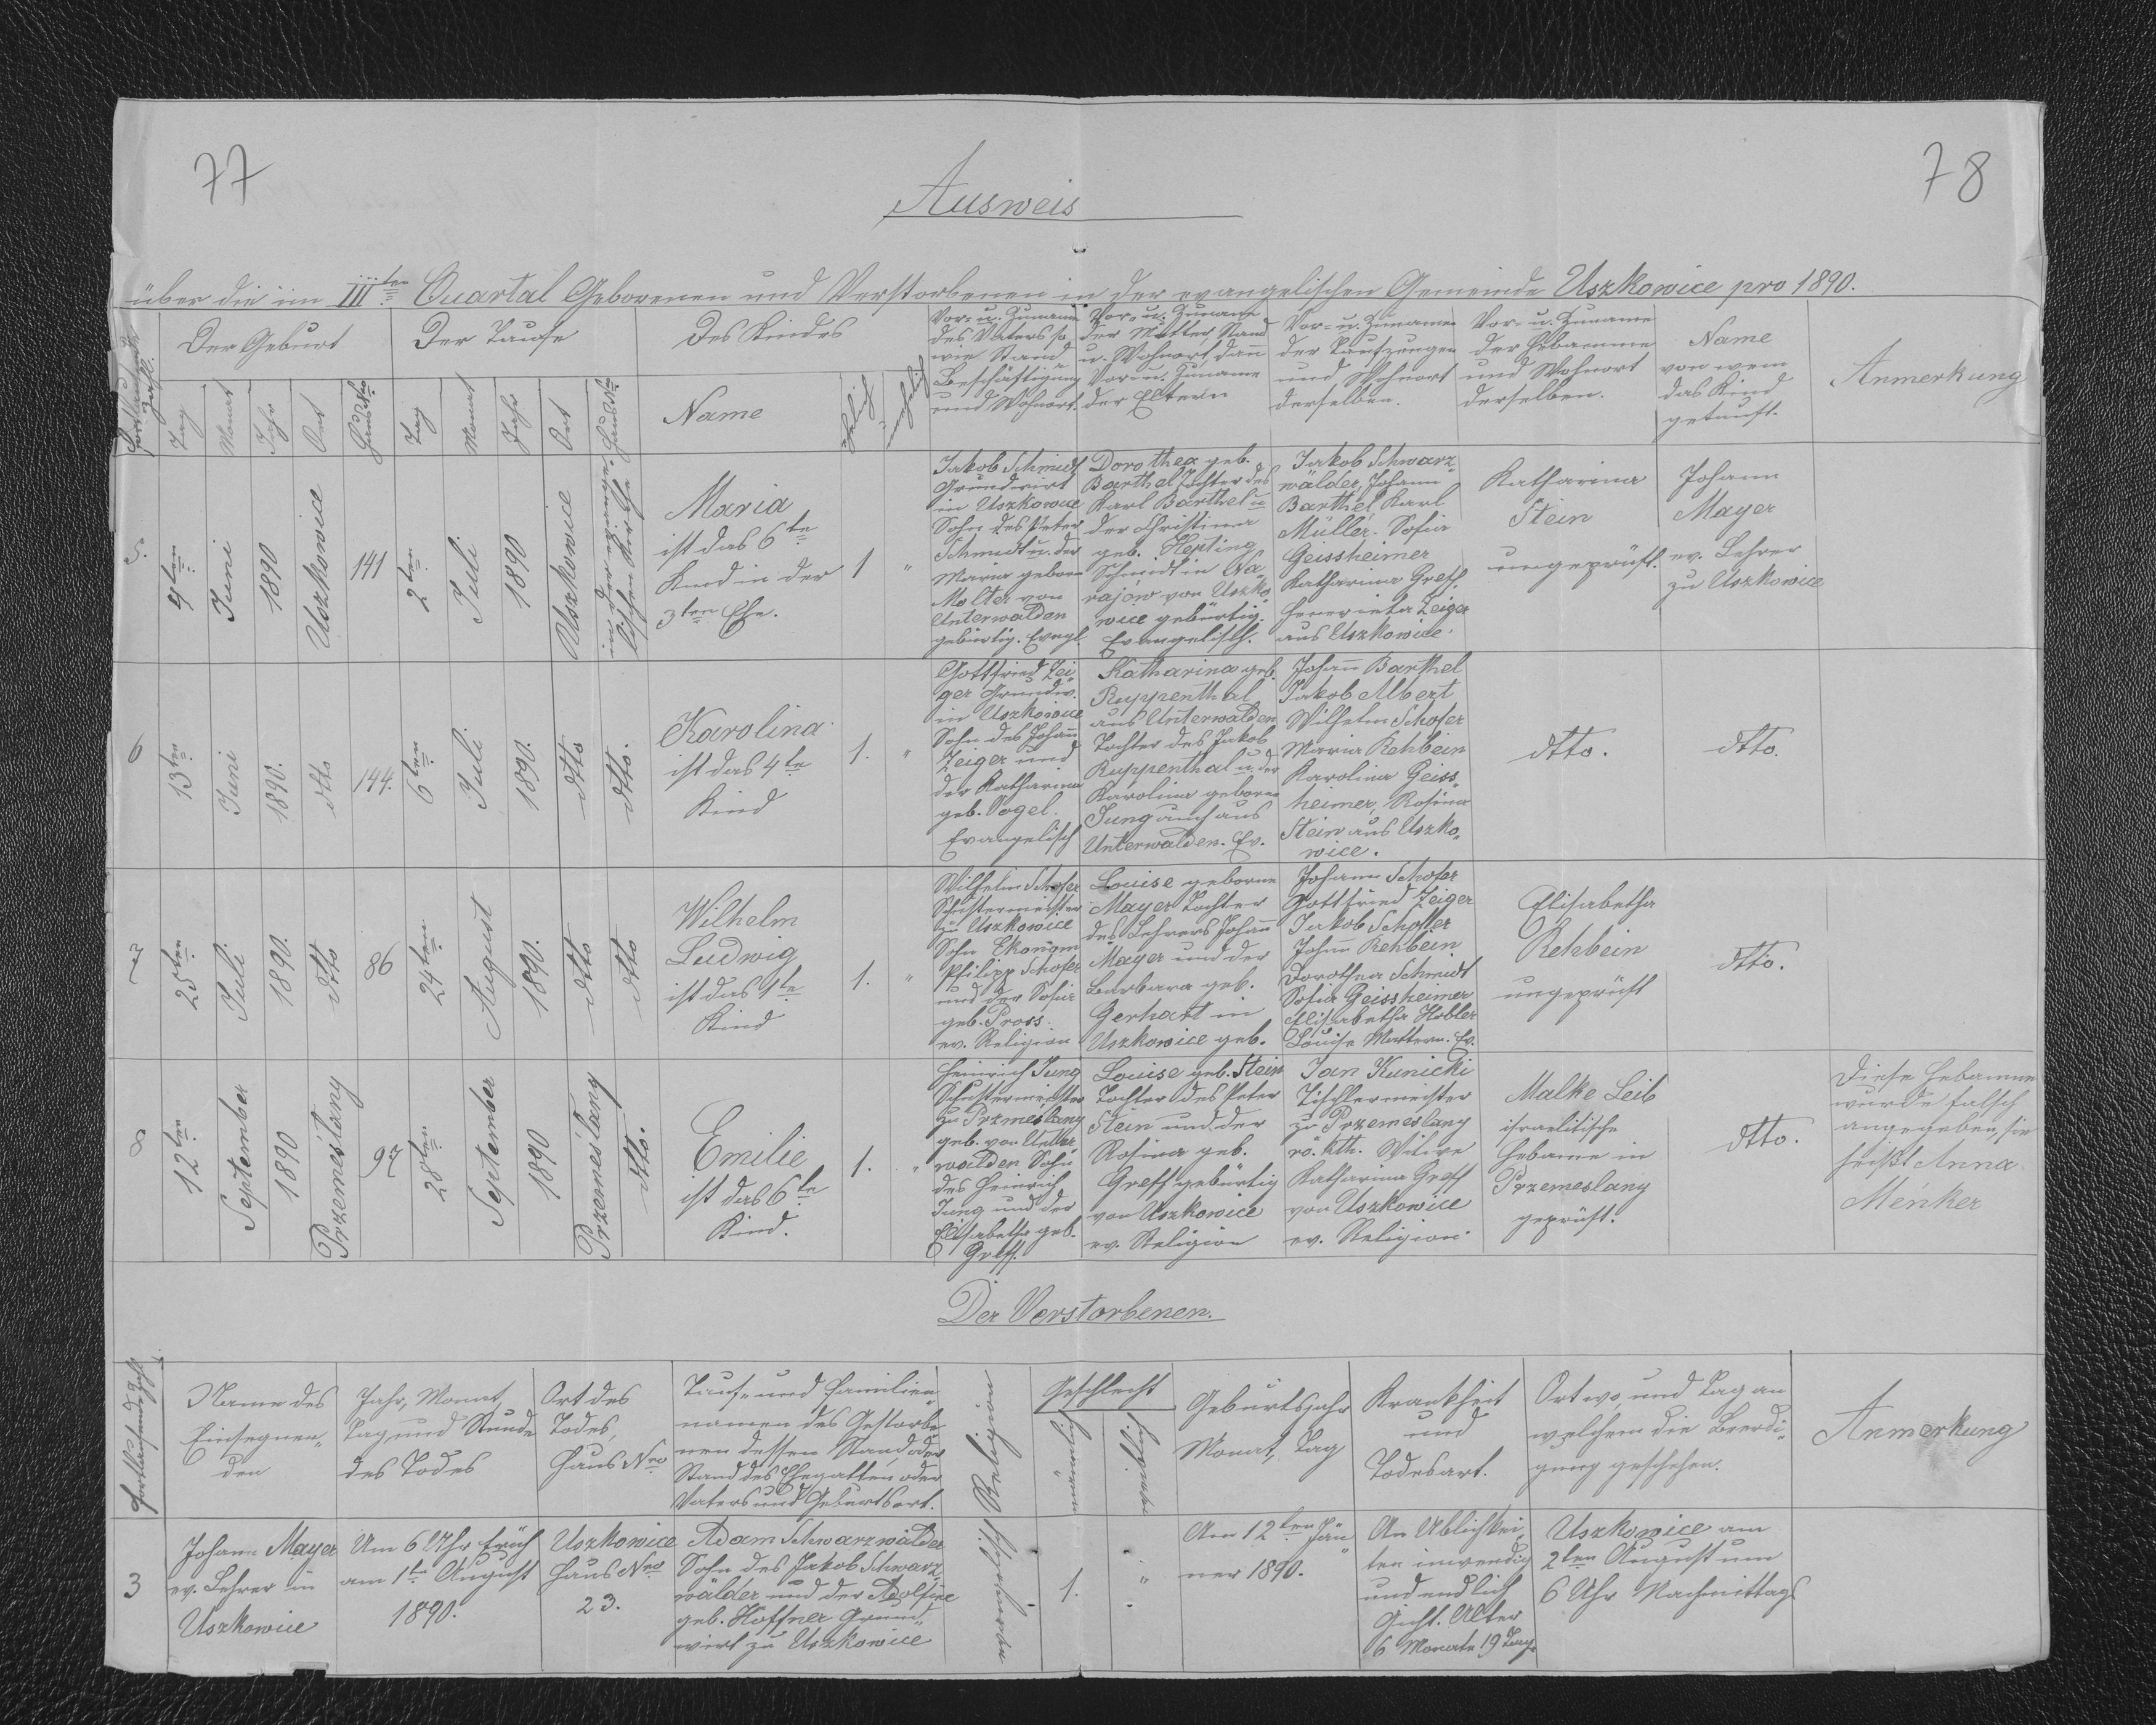 77
78
Ausweis
über die im III ten Quartal Geborenen und Verstorbenen in der evangelischen Gemeinde Uszkowice pro 1890.
Fortlaufende Zahl.
Der Geburt
Der Taufe
Des Kindes
Vor- u. Zuname
des Vaters so
wie Stand
Beschäftigung
und Wohnort.
Vor- u. Zuname
der Mutter Stand
u. Wohnort, dann
Vor- u. Zuname
der Eltern
Vor- u. Zuname
der Taufzeugen
und Wohnort
derselben.
Vor- u. Zuname
der Hebamme
und Wohnort
derselben.
Name
von wem
das Kind
getauft.
Anmerkung
Tag
Monat
Jahr
Ort
Haus No
Tag
Monat
Jahr
Ort
Haus No
Name
Ehelich
unehelich
5.
4ten
Juni
1890
Uszkowice
141
2ten
Juli
1890
Uszkowice
in der evange-
lischen Kirche
Maria
ist das 6te
Kind in der
3ten Ehe.
1
"
Jakob Schmidt
Grundwirt
in Uszkowice
Sohn des Peter
Schmidt u. der
Maria geborn
Molter von
Unterwalden
gebürtig. Evngl.
Dorothea geb.
Barthel Tochter des
Karl Barthel u
der Christina
geb. Hepting
Schmidt in Na-
rajow von Uszko-
wice gebürtig.
Evangelisch.
Jakob Schwarz-
wälder, Johann
Barthel, Karl
Müller. Sofia
Geissheimer
Katharina Greff.
Henrieta Zeiger
aus Uszkowice.
Katharina
Stein
ungeprüft.
Johann
Mayer
ev. Lehrer
zu Uszkowice
6
13ten
Juni
1890.
dtto
144.
6ten
Juli
1890.
dtto
dtto.
Karolina
ist das 4te
Kind
1.
"
Gottfried Zei-
ger Grundw.
in Uszkowice
Sohn des Johann
Zeiger und
der Katharina
geb. Vogel.
Evangelisch
Katharina geb.
Ruppenthal
aus Unterwalden
Tochter des Jakob
Ruppenthal u. der
Karolina geborne
Jung auch aus
Unterwalden. Ev.
Johann Barthel
Jakob Albert
Wilhelm Schofer
Maria Rehbein
Karolina Geiss-
heimer, Rosina
Stein aus Uszko-
wice.
dtto.
dtto.
7
25ten
Juli
1890.
dtto
86
24ten
August
1890.
dtto
dtto
Wilhelm
Ludwig
ist das 1te
Kind
1.
"
Wilhelm Schofer
Schustermeister
zu Uszkowice
Sohn Ekonom
Philipp Schofer
und der Sofia
geb. Pross.
ev. Religion
Louise geborne
Mayer Tochter
des Lehrers Johann
Mayer und der
Barbara geb.
Gerhart in
Uszkowice geb.
Johann Schofer
Gottfried Zeiger
Jakob Schofer
Johann Rehbein
Dorothea Schmidt
Sofia Geissheimer
Elisabetha Hobler
Louise Mattern. Ev.
Elisabetha
Rehbein
ungeprüft
dtto.
8
12ten
September
1890
Przemeślany
97
28ten
September
1890
Przemeślany
dtto.
Emilie
ist das 6te
Kind.
1.
"
Heinrich Jung
Schustermeister
zu Przmeslany
geb. von Unter
walden Sohn
des Heinrich
Jung und der
Elisabetha geb.
Greff.
Louise geb. Stein
Tochter des Peter
Stein und der
Rosina geb.
Greff gebürtig
von Uszkowice
ev. Religion
Jan Kunicki
Tischlermeister
zu Przemeslany
rö. kth. Witwe
Katharina Greff
von Uszkowice
ev. Religion.
Malke Leib
israelitische
Hebamme in
Przemeslany
geprüft.
dtto.
Diese Hebamme
wurde falsch
angegeben, sie
heißt Anna
Menker
Der Verstorbenen.
Fortlaufende Zahl.
Name des
Einsegnen-
den
Jahr, Monat,
Tag und Stunde
des Todes
Ort des
Todes,
Haus Nro
Tauf- und Familien-
namen des Gestorbe-
nen dessen Stand oder
Stand des Ehegatten oder
Vaters und Geburtsort.
Religion
Geschlecht
männlich
weiblich
Geburtsjahr
Monat, Tag
Krankheit
und
Todesart.
Ort wo, und Tag an
welchem die Beerdi-
gung geschehen.
Anmerkung
3
Johann Mayer
ev. Lehrer in
Uszkowice
Um 6 Uhr früh
am 1ten August
1890.
Uszkowice
Haus Nro
23.
Adam Schwarzwälder
Sohn des Jakob Schwarz-
wälder und der Adolfine
geb. Hoffner Grund-
wirt zu Uszkowice
evangelisch
1.
"
Am 12ten Jän-
ner 1890.
An
inwendig
und endlich
Gicht. Alter
6 Monate 19 Tage
Uszkowice am
2ten August um
6 Uhr Nachmittags